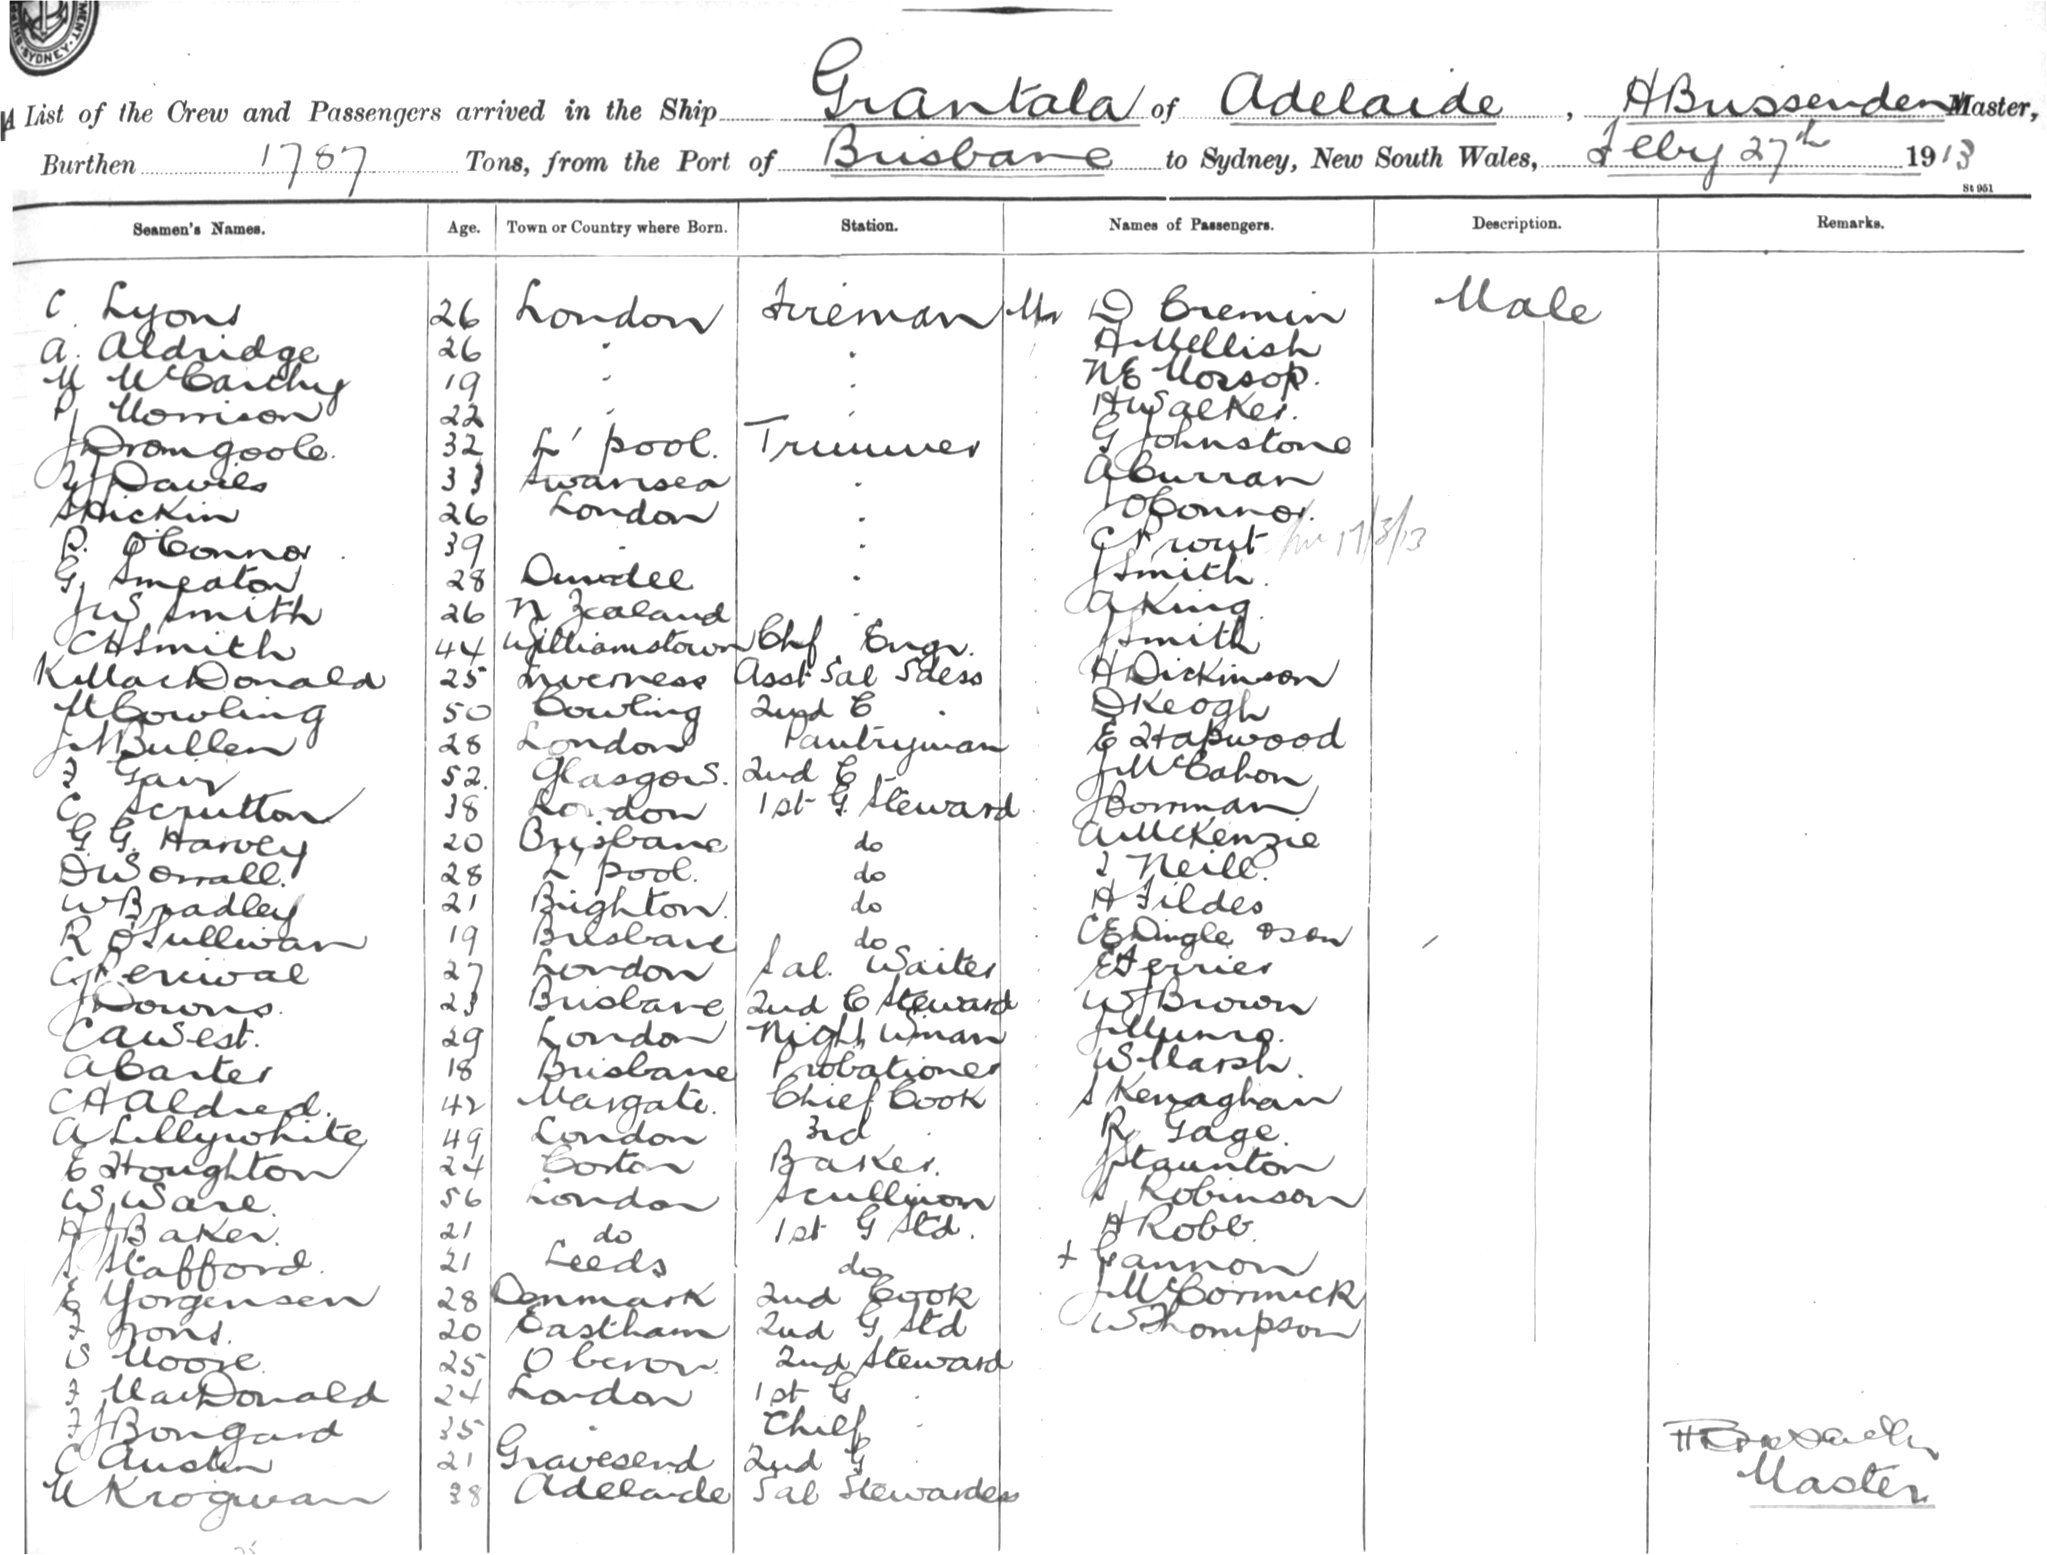 MENT SYDNEY
A List of the Crew and Passengers arrived in the Ship Grantala of Adelaide, H Bussenden Master,
Burthen 1787 Tons, from the Port of Brisbane to Sydney, New South Wales, Feby 27th 1913
St 951
Seamen's Names. Age. Town or Country where Born. Station. Names of Passengers. Description. Remarks.
C Lyons 26 London Fireman Mr D Cremin Male
A. Aldridge 26 " " A Mellish
M McCarthy 19 " " N E Mossop.
P Morrison 22 " " H Walker.
J Dromgoole. 32 L'pool. Trimmer G Johnstone
T J Davies 33 Swansea " A Curran
S Hickin 26 London " J O'Connor.
P. O'Connor 39 " " C Prout 17/3/13
G. Smeaton 28 Dundee " J Smith.
J W Smith 26 N Zealand " A King
C H Smith 44 Williamstown Chf Engr. J Smith
K MacDonald 25 Inverness Asst Sal Sdess H Dickinson
M Cowling 50 Cowling 2nd C " D Keogh
J Bullen 28 London Pantryman E Hapwood
F Gair 52. Glasgow. 2nd C " J McCahon
C Scrutton 38 London 1st G Steward J Borrman
G. G. Harvey 20 Brisbane do A McKenzie
D Worrall. 28 L'pool. do J Neill.
W Bradley 21 Brighton. do H Fildes
R O'Sullivan 19 Brisbane do C E Dingle & son
C Percival 27 London Sal. Waiter E Ferrier
J Downs. 23 Brisbane 2nd C Steward W J Brown
C A West. 29 London Night Wman J Munro.
A Carter 18 Brisbane Probationer W Marsh.
C H Aldred. 42 Margate. Chief Cook S Kenaghan
A Lillywhite 49 London 3rd " R Gage.
E Houghton 24 Coston Baker. J Staunton
W Ware. 56 London Scullion S Robinson
H J Baker. 21 do 1st G Std. H Robb.
S Stafford. 21 Leeds do + Gannon
E Yorgensen 28 Denmark 2nd Cook J McCormick
F Irons. 20 Eastham 2nd G Std W Thompson
W Moore. 25 Oberon. 2nd Steward
F MacDonald 24 London 1st G "
F J Bongard 35 " Chief "
C Austin 21 Gravesend 2nd G "
M Krogman 38 Adelaide Sal Stewardess
Master